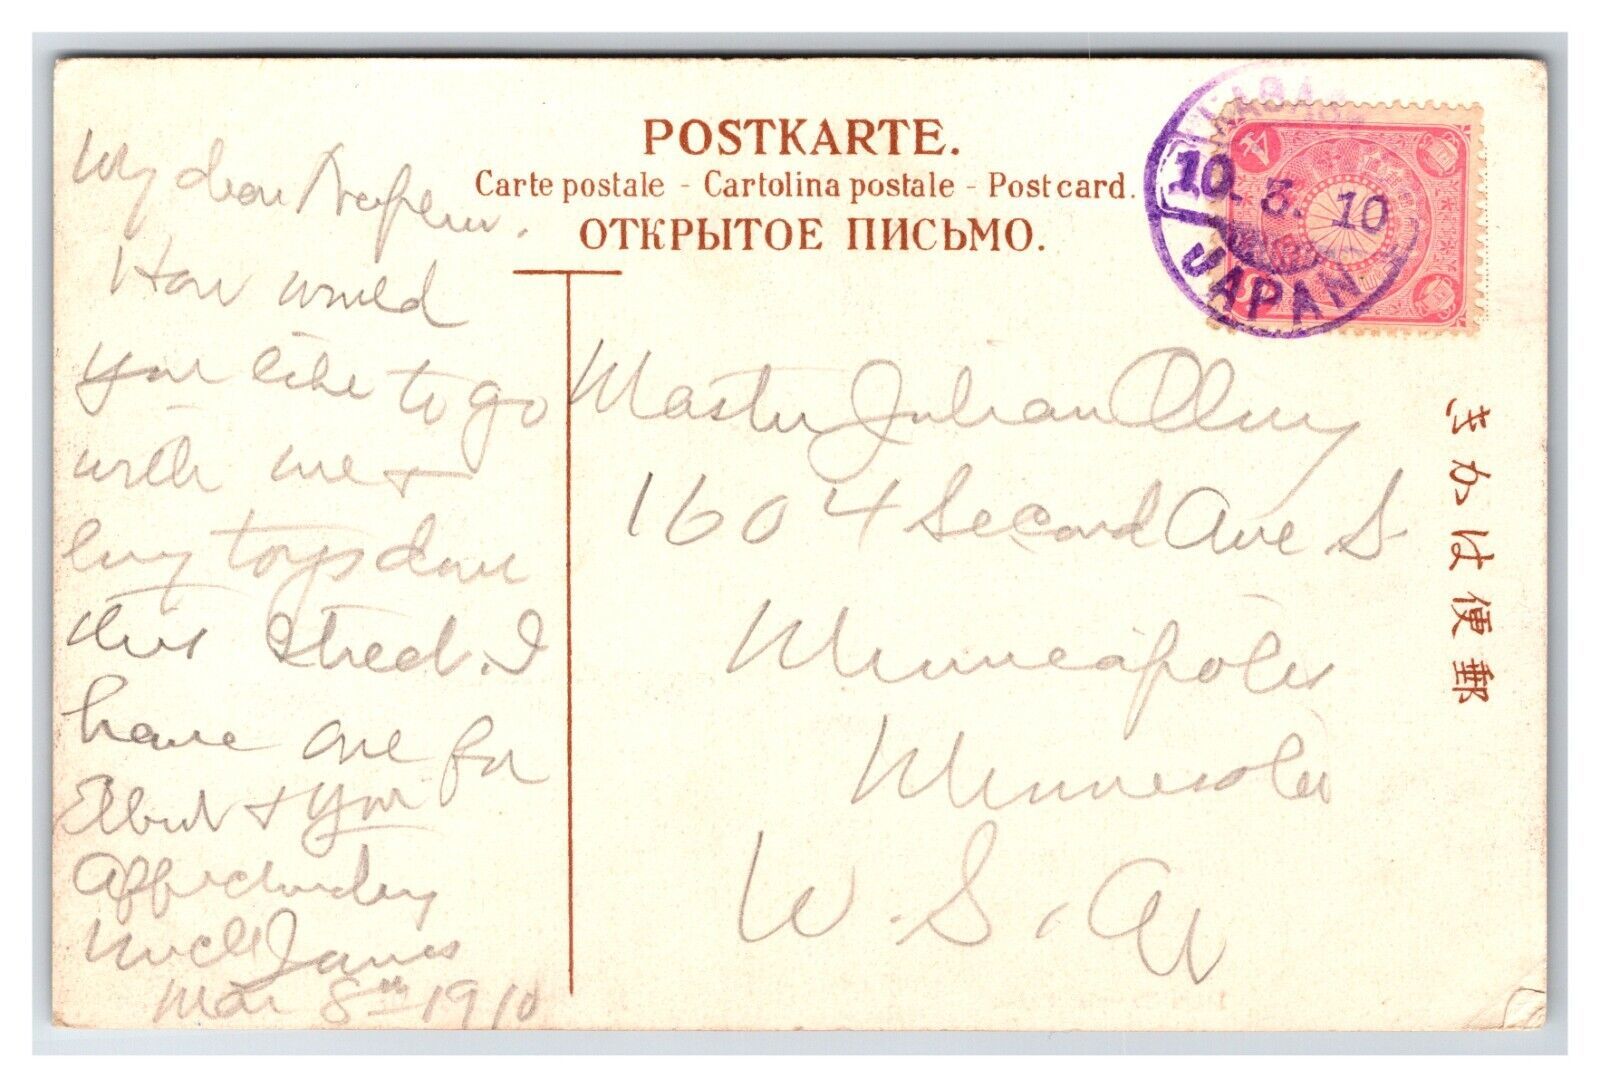 POSTKARTE.
Carte postale - Cartolina postale - Post card.
ОТКРЫТОЕ ПИСЬМО.
10. 3. 10
JAPAN
4
きかは便郵
My dear Nephew.
How would
you like to go
with me +
buy toys down
this street. I
have one for
Elbert + you
Affectionately
Uncle James
Mar 8th 1910
Master Julian
1604 Second Ave S
Minneapolis
Minnesota
U.S.A